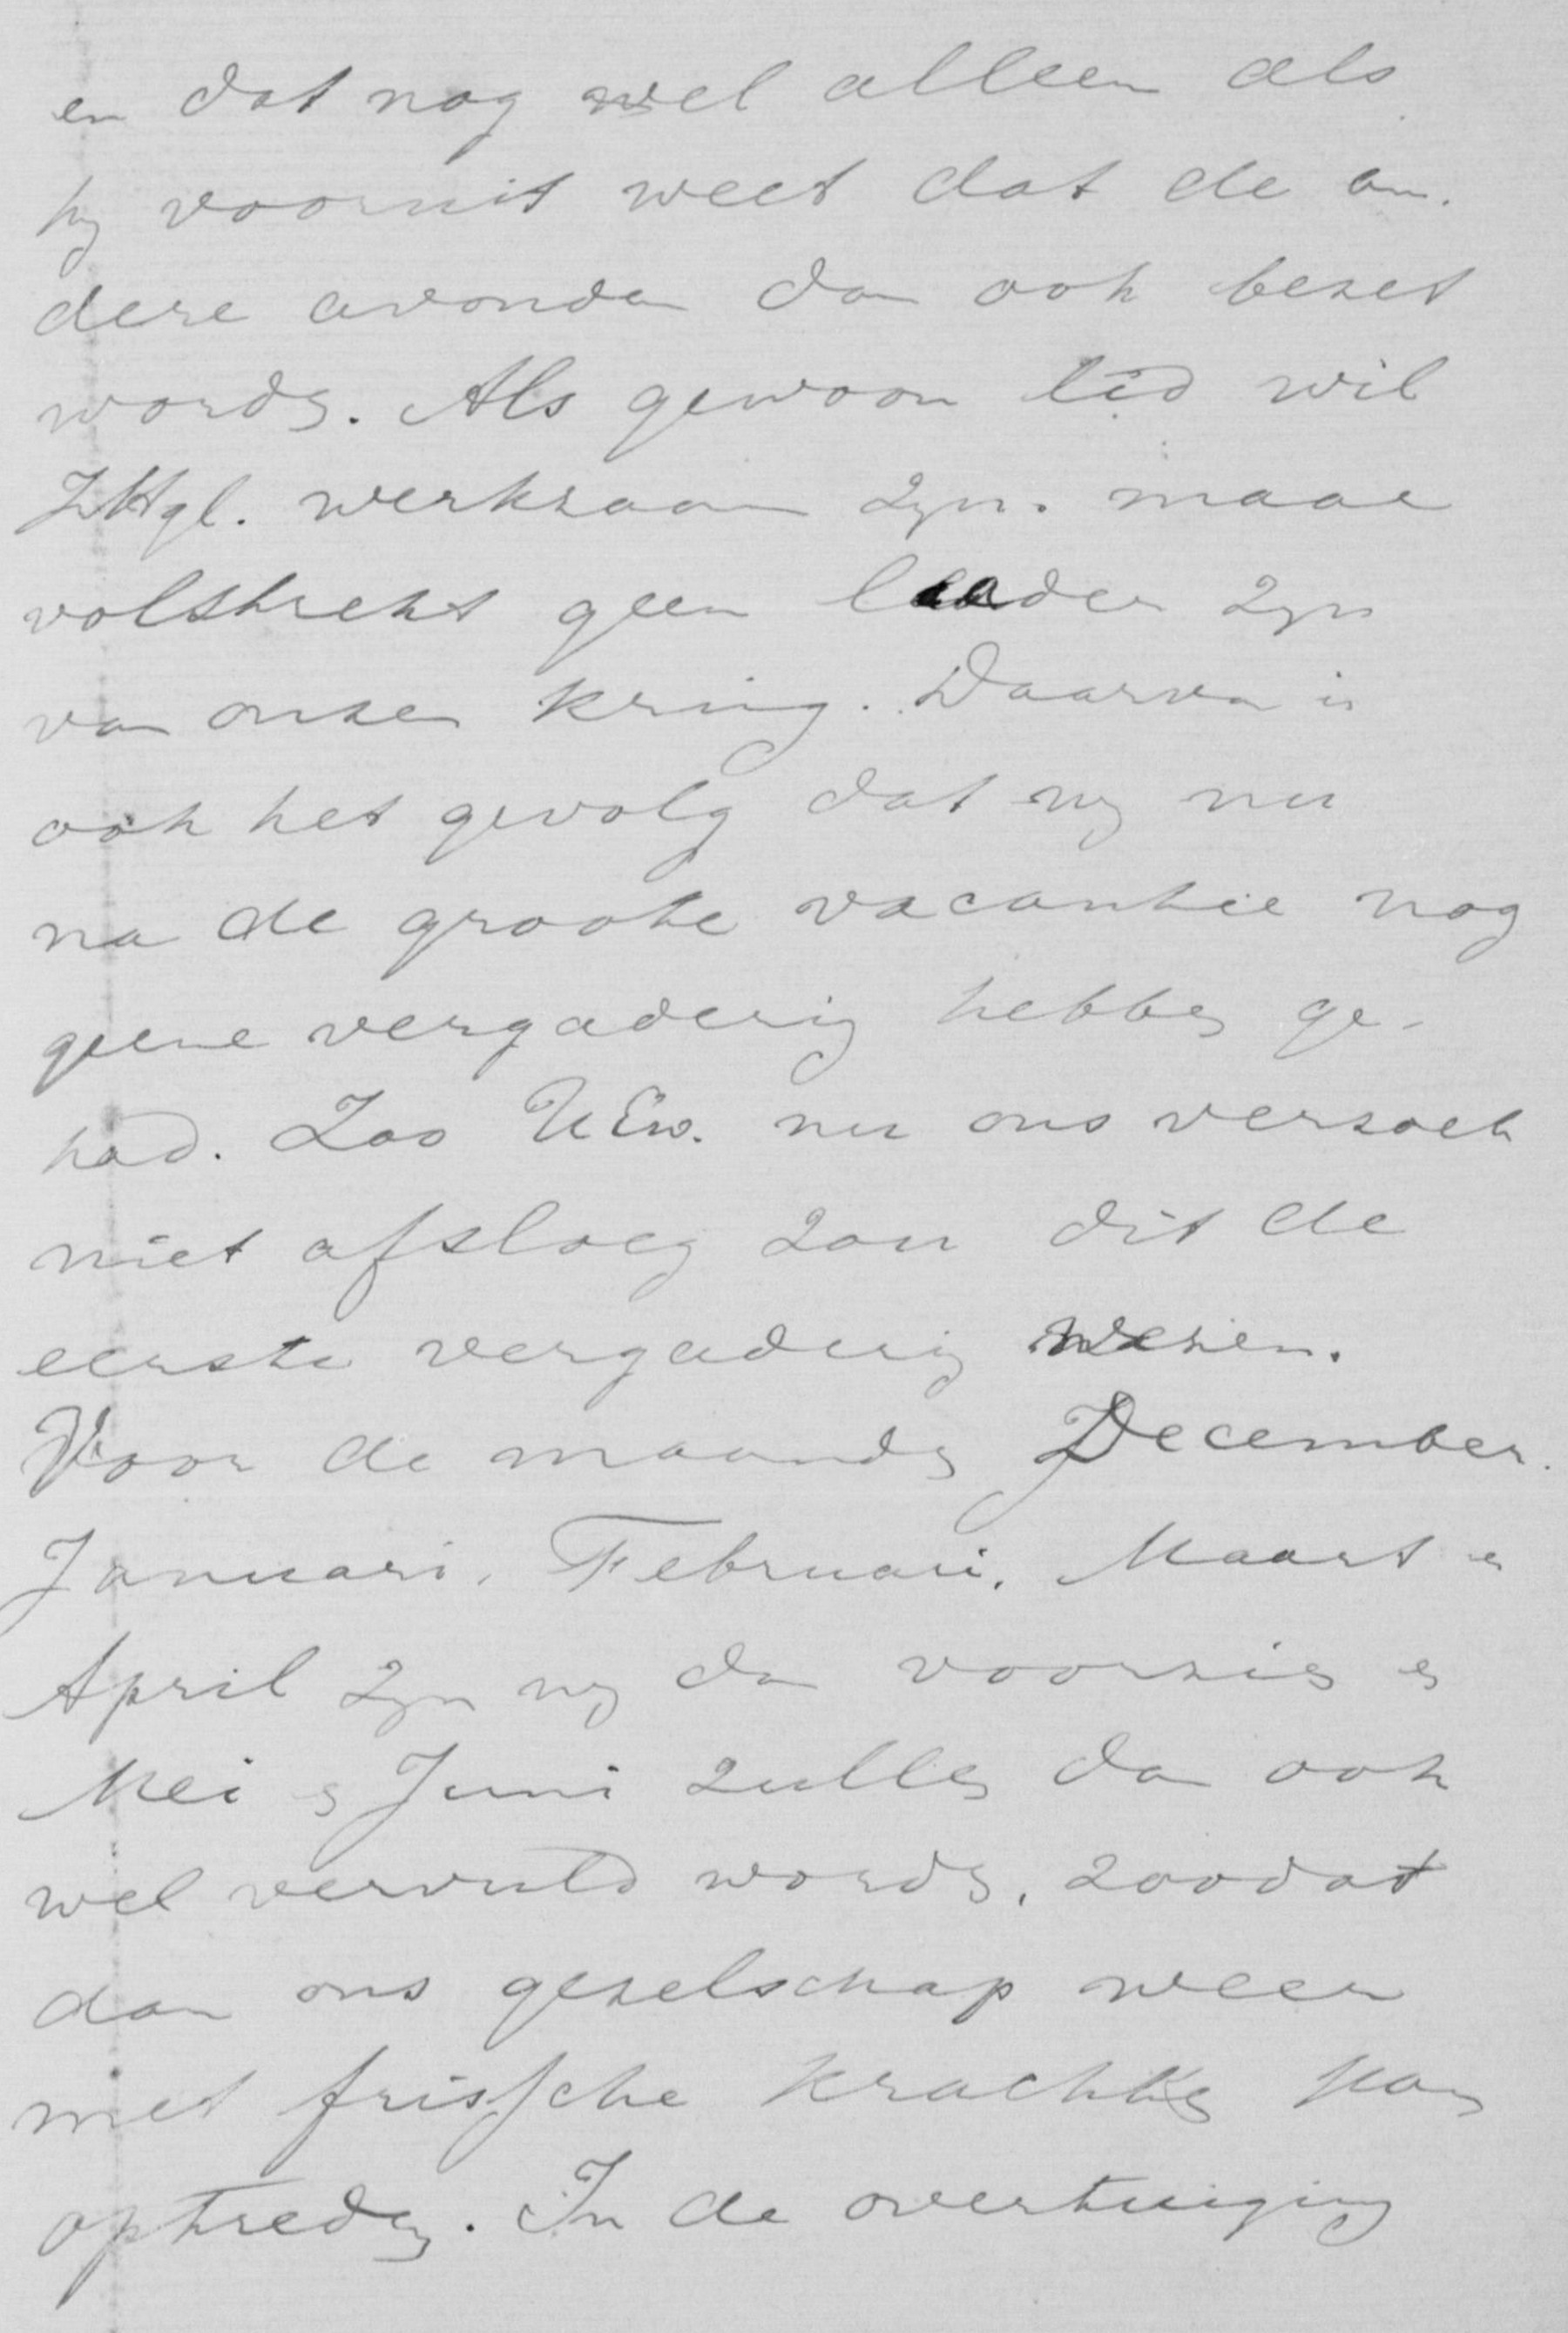 en dat nog wel alleen als
hij vooruit weet dat de an-
dere avonden dan ook bezet
worden. Als gewoon lid wil
ZHgl. werkzaam zijn. maar
volstrekt geen leader zijn
van onzen kring. Daarvan is
ook het gevolg dat wij nu
na de groote vacantie nog
geene vergadering hebben ge-
had. Zoo UEw. nu ons verzoek
niet afsloeg zou dit de
eerste vergadering wezen.
Voor de maanden December.
Januari, Februari, Maart en
April zijn wij dan voorzien en
Mei en Juni zullen dan ook
wel vervuld worden, zoodat
dan ons gezelschap weer
met frissche krachten kan
optreden. In de overtuiging